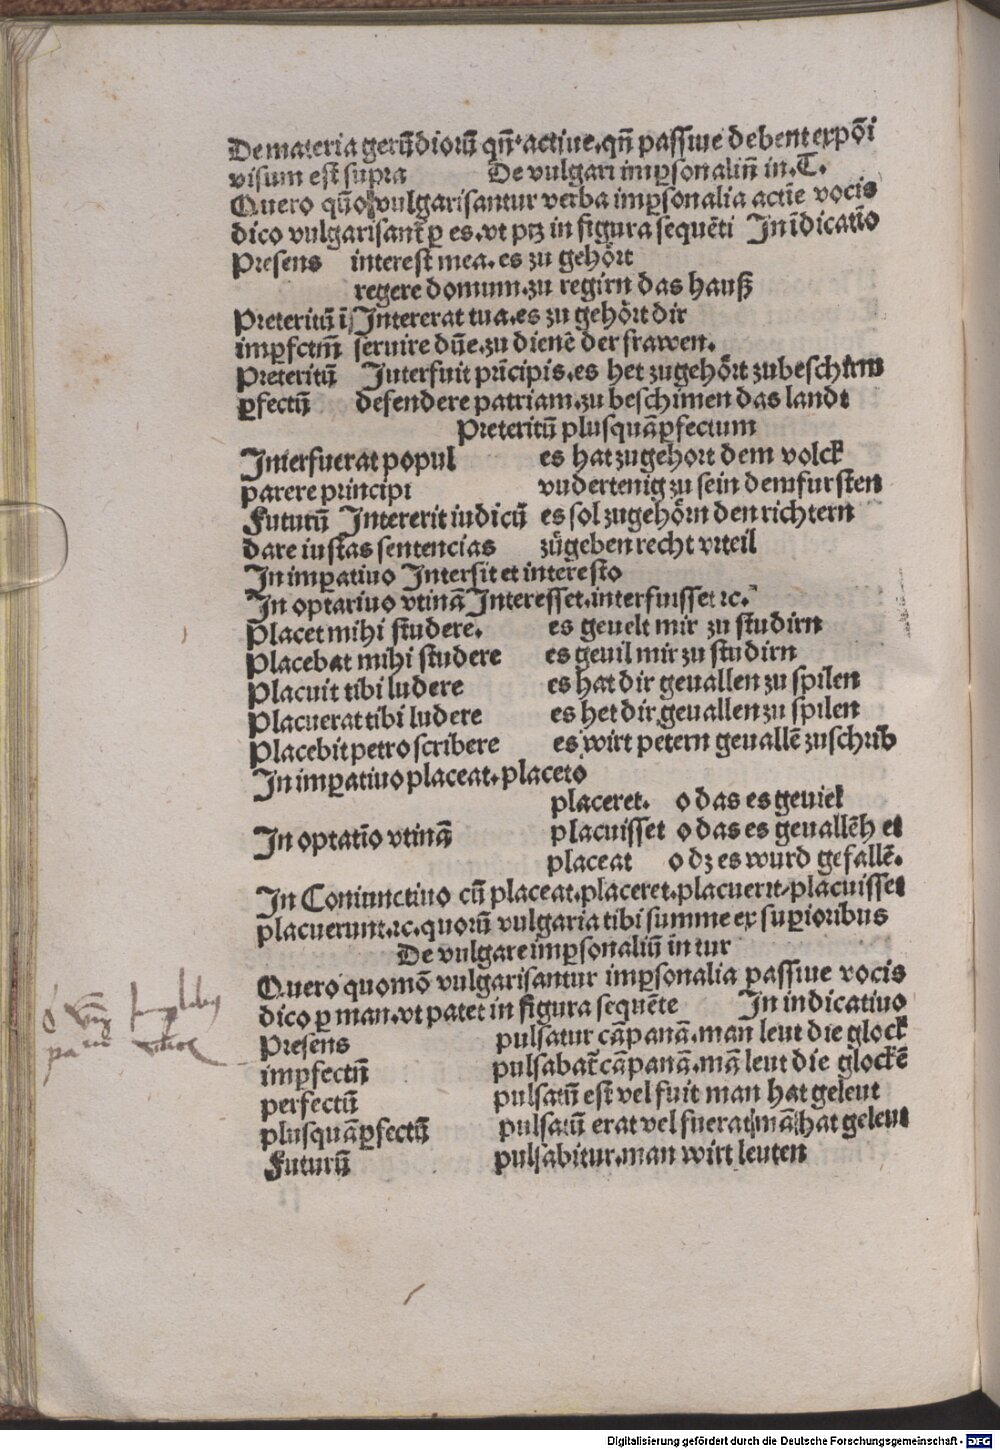 De materia gerūdiorū qn̄ actiue. qn̄ passiue debent expōi
visum est supra De vulgari imꝑsonaliū in. T.
Quero qūo vulgarisantur verba imꝑsonalia actīe vocis
dico vulgarisant̄ ꝑ es. vt ptꝫ in figura sequēti In īdicatīo
Presens interest mea. es zu gehört
regere domum. zu regirn das hauß
Preteritū ī Intererat tua. es zu gehört dir
imꝑfctm̄ seruire dn̄e. zu dienē der frawen.
Preteritū Interfuit prīcipis. es het zugehört zubeschirm
ꝑfectū defendere patriam. zu beschimen das landt
Preteritū plusquāꝑfectum
Interfuerat popul es hat zugehort dem volck
parere principi vndertenig zu sein dem fursten
Futurū Intererit iudicū es sol zugehörn den richtern
dare iustas sentencias zůgeben recht vrteil
In imꝑatiuo Intersit et interesto
In optatiuo vtinā Interesset. interfuisset ⁊c.
Placet mihi studere. es geuelt mir zu studirn
Placebat mihi studere es geuil mir zu studirn
Placuit tibi ludere es hat dir geuallen zu spilen
Placuerat tibi ludere es het dir geuallen zu spilen
Placebit petro scribere es wirt petern geuallē zuschrib
In imꝑatiuo placeat. placeto
placeret. o das es geuiel
In optatīo vtinā placuisset o das es geuallēh et
placeat o dꝫ es wurd gefallē.
In Coniunctiuo cū placeat. placeret. placuerit/ placuisset
placuerunt. ⁊c. quorū vulgaria tibi summe ex suꝑioribus
De vulgare imꝑsonaliū in tur
Quero quomō vulgarisantur imꝑsonalia passiue vocis
dico ꝑ man. vt patet in figura sequēte In indicatiuo
Presens pulsatur cāpanā. man leut die glock
imꝑfectū pulsabat̄ cāpanā. mā leut die glockē
perfectū pulsatū est vel fuit man hat geleut
plusquāꝑfectū pulsatū erat vel fuerat mā hat geleut
Futurū pulsabitur. man wirt leuten
Digitalisierung gefördert durch die Deutsche Forschungsgemeinschaft - DFG